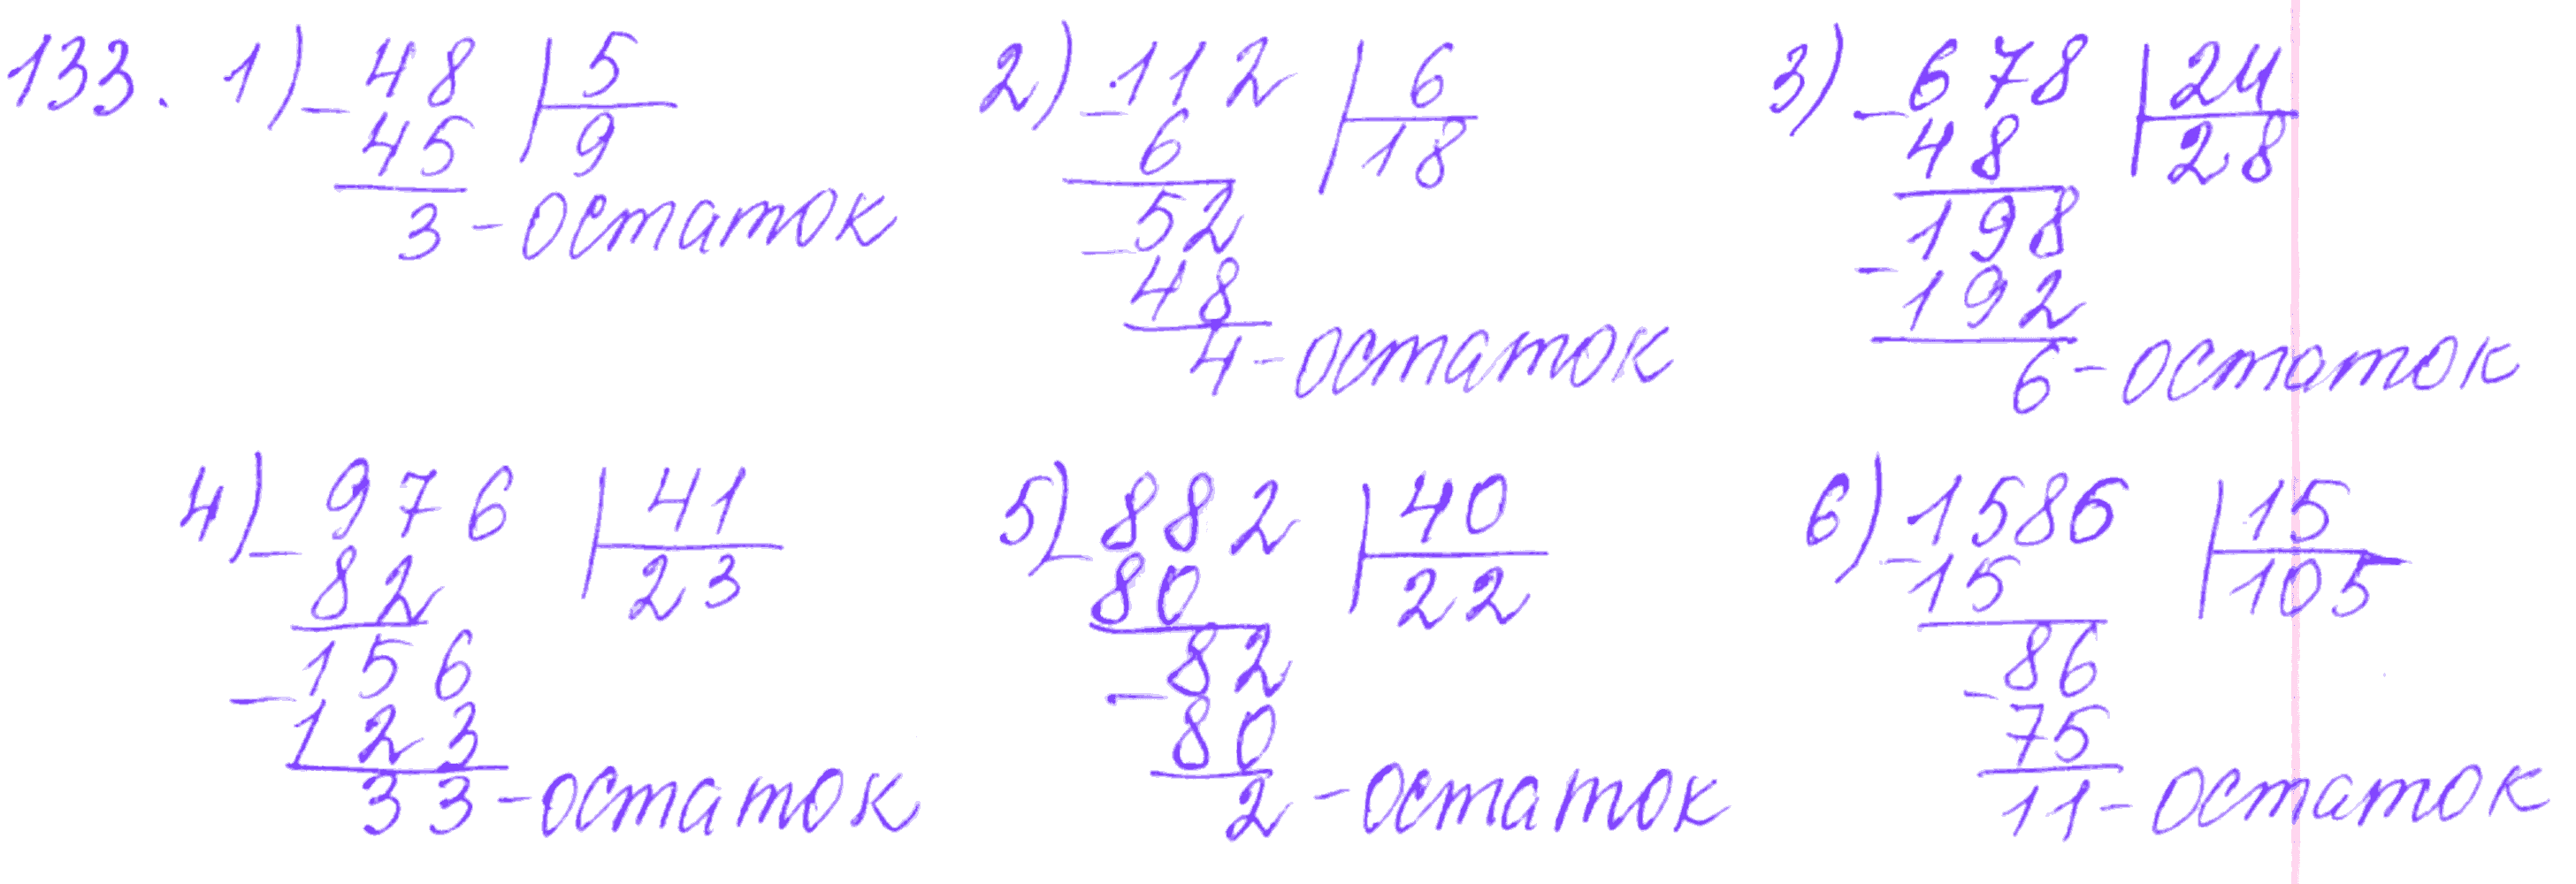 133. 1) - 48 | 5
45 | 9
3 - остаток
2) - 112 | 6
6 | 18
- 52
48
4 - остаток
3) - 678 | 24
48 | 28
198
- 192
6 - остаток
4) - 976 | 41
82 | 23
- 156
123
33 - остаток
5) - 882 | 40
80 | 22
- 82
80
2 - остаток
6) - 1586 | 15
15 | 105
- 86
75
11 - остаток